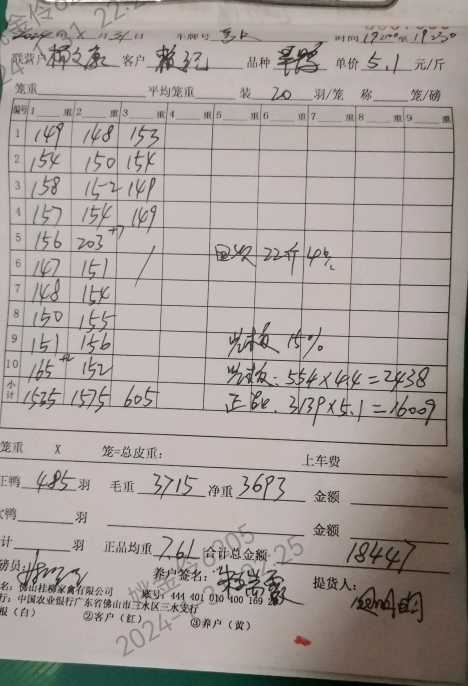 2024年 X月31日 车牌号 时间1920至19250
联营户 杨文 客户 赖记 品种 单价5.1元/斤
笼重 平均笼重 装20羽/笼 称 笼/磅
编号 1 重 2 重 3 重 4 重 5 重 6 重 7 重 8 重 9 重
1 149 148 153
2 154 150 154
3 158 152 149
4 157 154 149
5 156 203 +7 22斤4%
6 147 151 /
7 148 154
8 150 155
9 151 156 15%
10 165 +2 152 554×4.4=2438
小计 1535 1575 605 正 3139×5.1=16009
笼重 X 笼=总皮重: 上车费
正鸭 485 羽 毛重 3715 净重 3693 金额
次鸭 羽 金额
计 羽 正品均重 7.61 合计总金额 18447
磅员: 养户签名: 提货人:
名:佛山桂柳家禽有限公司 账号:444 401 010 400 169
行:中国农业银行广东省佛山市三水区三水支行
报(白) ②客户(红) ③养户(黄)